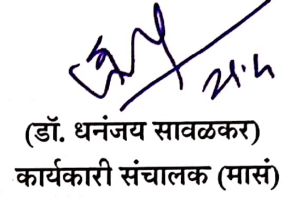 (डॉ. धनंजय सावळकर)
कार्यकारी संचालक (मासं)